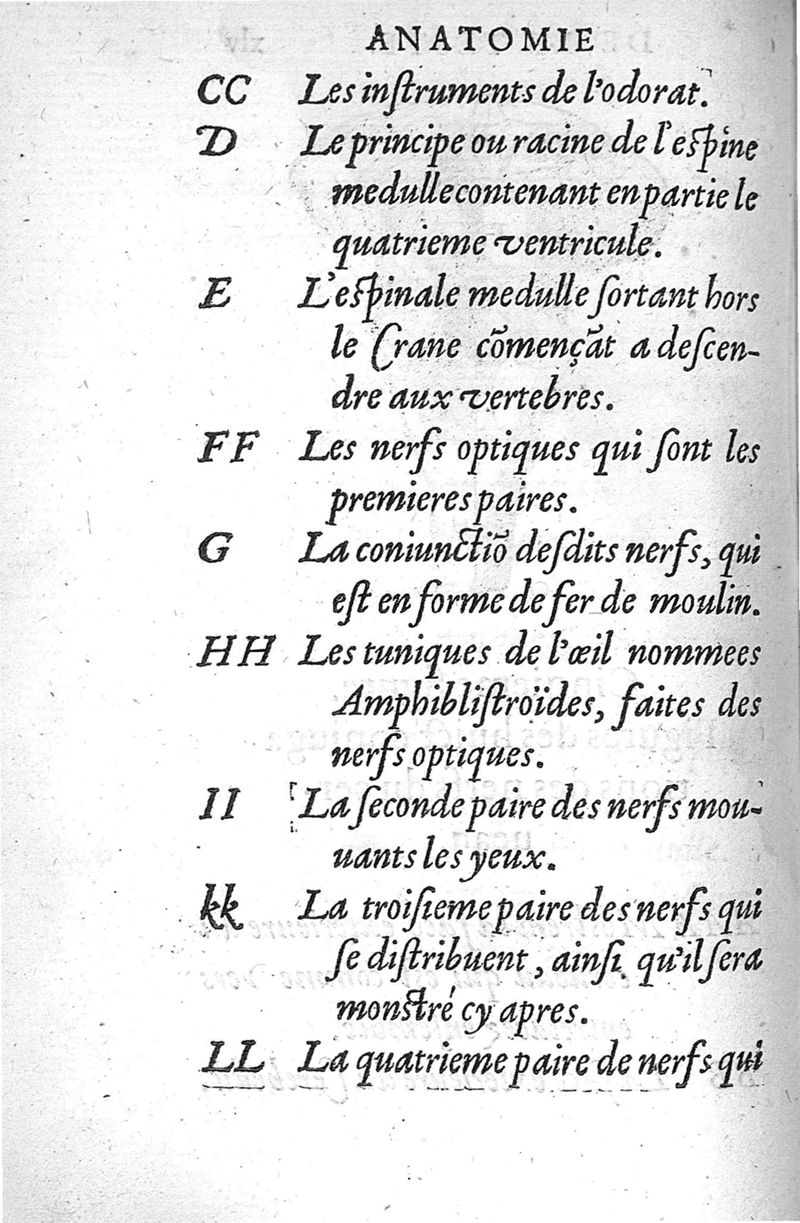 ANATOMIE
CC Les inſtruments de l'odorat.
D Le principe ou racine de l'eſpine
medulle contenant en partie le
quatrieme ventricule.
E L'eſpinale medulle ſortant hors
le Crane cõmençãt a deſcen-
dre aux vertebres.
FF Les nerfs optiques qui ſont les
premieres paires.
G La coniunctiõ deſdits nerfs, qui
eſt en forme de fer de moulin.
HH Les tuniques de l'œil nommees
Amphibliſtroïdes, faites des
nerfs optiques.
II La ſeconde paire des nerfs mou-
uants les yeux.
kk La troiſieme paire des nerfs qui
ſe diſtribuent, ainſi qu'il ſera
monſtré cy apres.
LL La quatrieme paire de nerfs qui